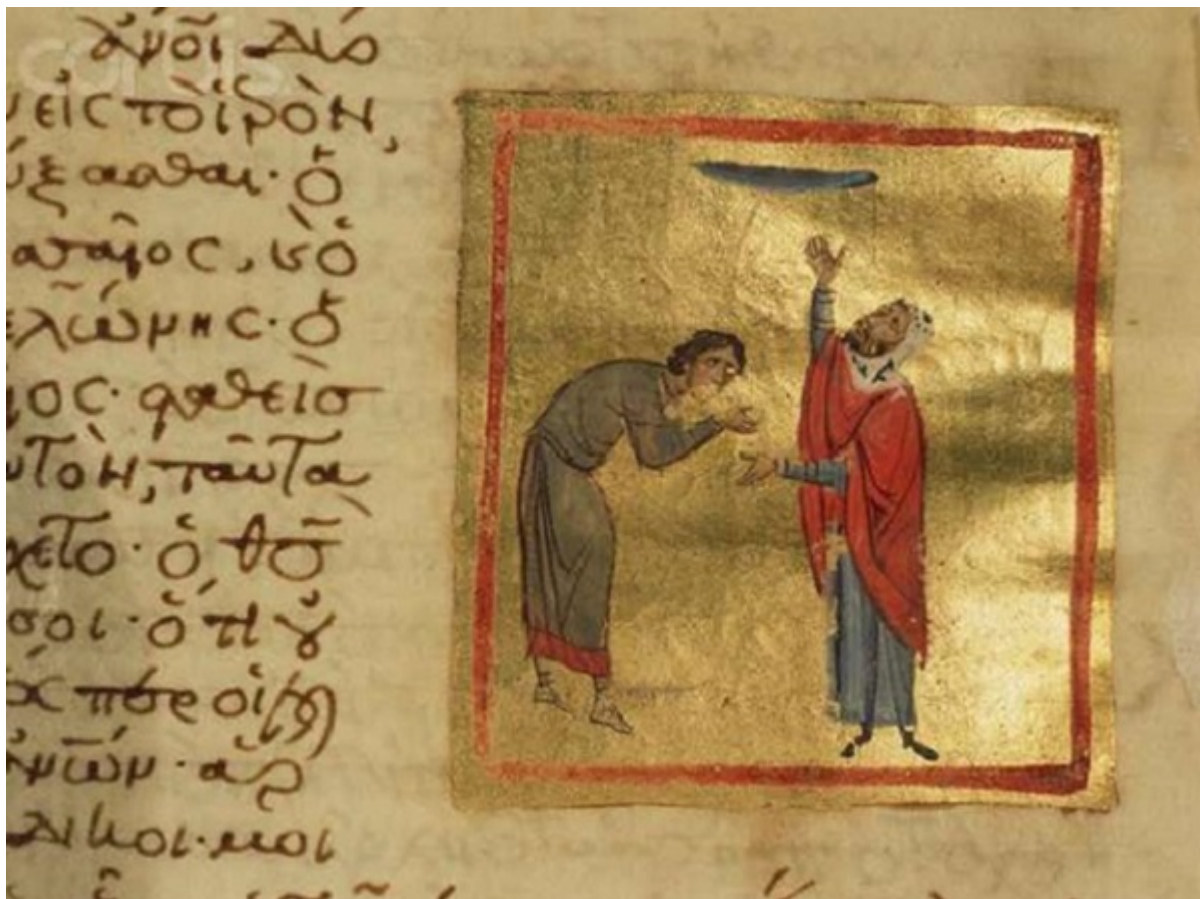 corbis
ἄνο̅ι δύο
εἰς τὸ ἱρὸν,
ύξασθαι· ὁ
σαῖος, κ ὁ
ελώνης· ὁ
ῖος· σταθεὶσ
υτὸν, ταῦτα
χετο· ὁ θ̅σ̅
σοι· ὅτι οὐ
περ οἱ
ἀν̅ω̅ν· ἁρ
δικοι· μοι